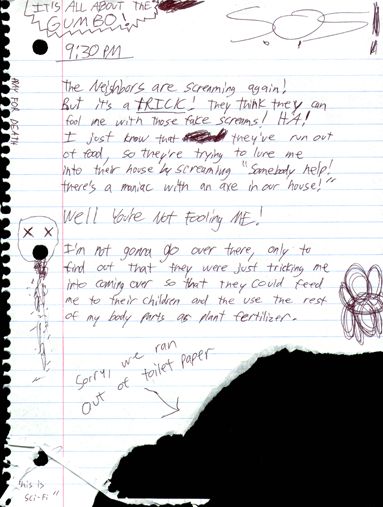 IT'S ALL ABOUT THE
GUMBO!
SOS
9:30 PM
PRAY FOR DEATH
The Neighbors are screaming again!
But it's a TRICK! They think they can
fool me with those fake screams! HA!
I just know that they've run out
of food, so they're trying to lure me
into their house by screaming "Somebody help!
there's a maniac with an axe in our house!"
Well You're Not Fooling ME!
I'm not gonna go over there, only to
find out that they were just tricking me
into coming over so that they could feed
me to their children and the use the rest
of my body parts as plant fertilizer.
Sorry, we ran
out of toilet paper
"This is
Sci-Fi"